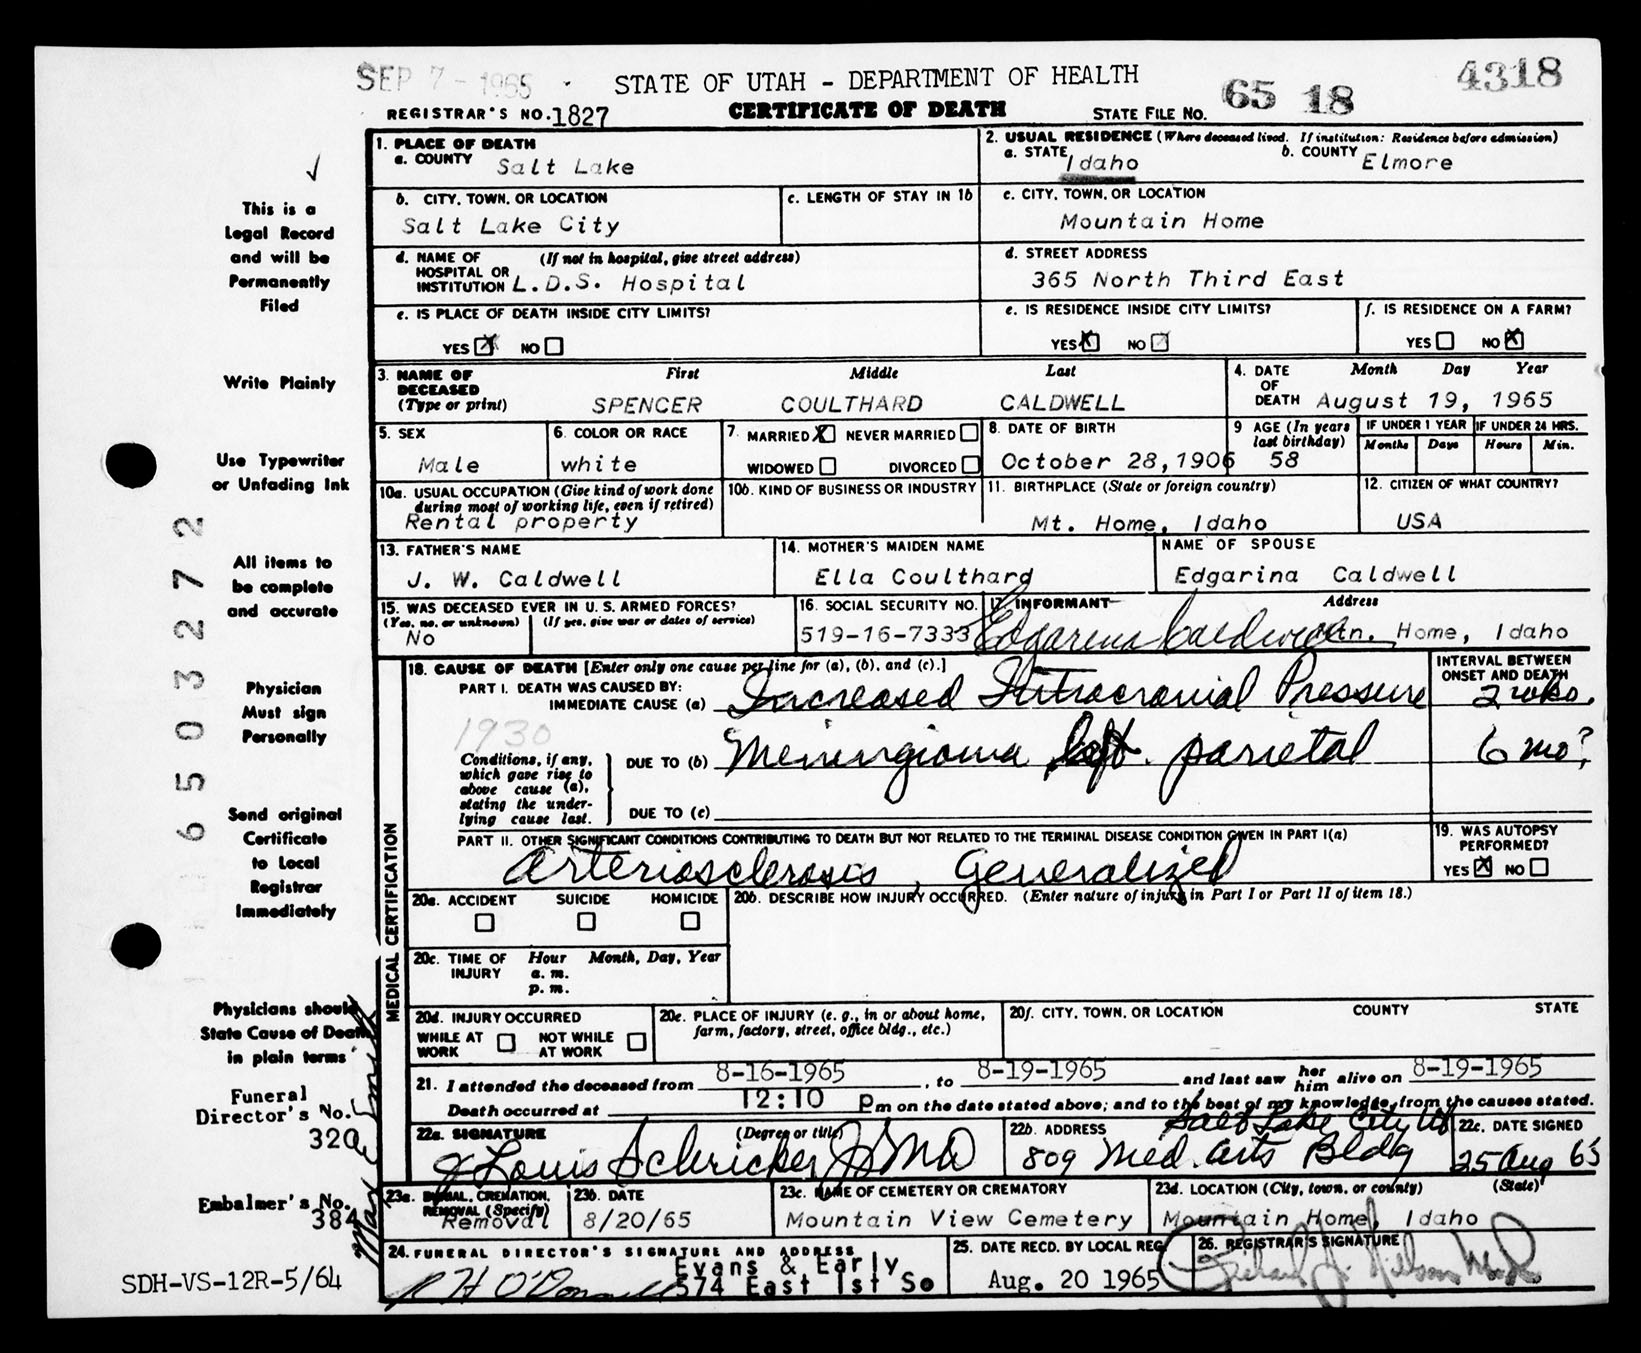 SEP 7 - 1965
STATE OF UTAH - DEPARTMENT OF HEALTH
4318
REGISTRAR'S NO. 1827
CERTIFICATE OF DEATH
STATE FILE NO. 65 18
1. PLACE OF DEATH
a. COUNTY Salt Lake
2. USUAL RESIDENCE (Where deceased lived. If institution: Residence before admission)
a. STATE Idaho
b. COUNTY Elmore
b. CITY, TOWN, OR LOCATION
Salt Lake City
c. LENGTH OF STAY IN 1b
c. CITY, TOWN, OR LOCATION
Mountain Home
d. NAME OF HOSPITAL OR INSTITUTION (If not in hospital, give street address)
L.D.S. Hospital
d. STREET ADDRESS
365 North Third East
e. IS PLACE OF DEATH INSIDE CITY LIMITS?
YES X NO
e. IS RESIDENCE INSIDE CITY LIMITS?
YES X NO
f. IS RESIDENCE ON A FARM?
YES NO X
3. NAME OF DECEASED (Type or print)
First Middle Last
SPENCER COULTHARD CALDWELL
4. DATE OF DEATH
Month Day Year
August 19, 1965
5. SEX
Male
6. COLOR OR RACE
white
7. MARRIED X NEVER MARRIED
WIDOWED DIVORCED
8. DATE OF BIRTH
October 28, 1906
9 AGE (In years last birthday)
58
IF UNDER 1 YEAR
Months Days
IF UNDER 24 HRS.
Hours Min.
10a. USUAL OCCUPATION (Give kind of work done during most of working life, even if retired)
Rental property
10b. KIND OF BUSINESS OR INDUSTRY
11. BIRTHPLACE (State or foreign country)
Mt. Home, Idaho
12. CITIZEN OF WHAT COUNTRY?
USA
13. FATHER'S NAME
J. W. Caldwell
14. MOTHER'S MAIDEN NAME
Ella Coulthard
NAME OF SPOUSE
Edgarina Caldwell
15. WAS DECEASED EVER IN U. S. ARMED FORCES?
(Yes, no, or unknown) (If yes, give war or dates of service)
No
16. SOCIAL SECURITY NO.
519-16-7333
17. INFORMANT Address
Edgarina Caldwell Mtn. Home, Idaho
MEDICAL CERTIFICATION
18. CAUSE OF DEATH [Enter only one cause per line for (a), (b), and (c).]
INTERVAL BETWEEN ONSET AND DEATH
PART I. DEATH WAS CAUSED BY:
IMMEDIATE CAUSE (a) Increased Intracranial Pressure 2 wks.
1930
Conditions, if any, which gave rise to above cause (a), stating the underlying cause last.
DUE TO (b) Meningioma left parietal 6 mo?
DUE TO (c)
PART II. OTHER SIGNIFICANT CONDITIONS CONTRIBUTING TO DEATH BUT NOT RELATED TO THE TERMINAL DISEASE CONDITION GIVEN IN PART I(a)
Arteriosclerosis, Generalized
19. WAS AUTOPSY PERFORMED?
YES X NO
20a. ACCIDENT SUICIDE HOMICIDE
20b. DESCRIBE HOW INJURY OCCURRED. (Enter nature of injury in Part I or Part II of item 18.)
20c. TIME OF INJURY Hour Month, Day, Year
a. m.
p. m.
20d. INJURY OCCURRED
WHILE AT WORK NOT WHILE AT WORK
20e. PLACE OF INJURY (e. g., in or about home, farm, factory, street, office bldg., etc.)
20f. CITY, TOWN, OR LOCATION COUNTY STATE
21. I attended the deceased from 8-16-1965, to 8-19-1965 and last saw her him alive on 8-19-1965
Death occurred at 12:10 Pm on the date stated above; and to the best of my knowledge, from the causes stated.
22a. SIGNATURE (Degree or title)
J Louis Schricker Jr MD
22b. ADDRESS
Salt Lake City Ut
809 Med. Arts Bldg
22c. DATE SIGNED
25 Aug 65
23a. BURIAL, CREMATION, REMOVAL (Specify)
Removal
23b. DATE
8/20/65
23c. NAME OF CEMETERY OR CREMATORY
Mountain View Cemetery
23d. LOCATION (City, town, or county) (State)
Mountain Home, Idaho
24. FUNERAL DIRECTOR'S SIGNATURE AND ADDRESS
Evans & Early
R H O'Donnell 574 East 1st So
25. DATE RECD. BY LOCAL REG.
Aug. 20 1965
26. REGISTRAR'S SIGNATURE
This is a
Legal Record
and will be
Permanently
Filed
Write Plainly
Use Typewriter
or Unfading Ink
All items to
be complete
and accurate
Physician
Must sign
Personally
Send original
Certificate
to Local
Registrar
Immediately
Physicians should
State Cause of Death
in plain terms
Funeral
Director's No.
320
Embalmer's No.
384
SDH-VS-12R-5/64
6503272